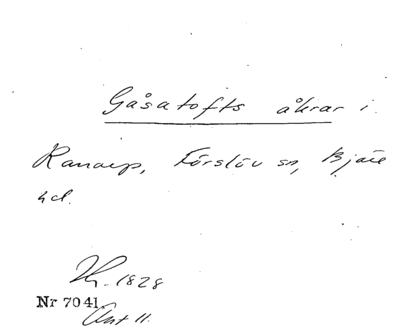 Gåsatofts åkrar i
Ranarp, Förslöv sn, Bjäre
hd.
1828
Nr 7041
Akt 11.